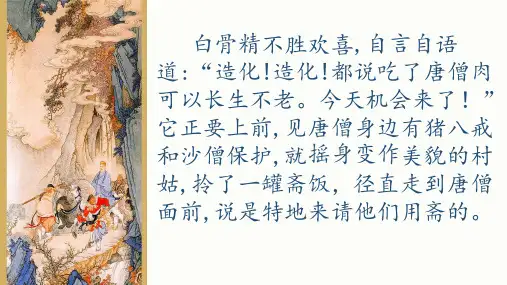 白骨精不胜欢喜,自言自语
道:“造化!造化!都说吃了唐僧肉
可以长生不老。今天机会来了!”
它正要上前,见唐僧身边有猪八戒
和沙僧保护,就摇身变作美貌的村
姑,拎了一罐斋饭，径直走到唐僧
面前,说是特地来请他们用斋的。